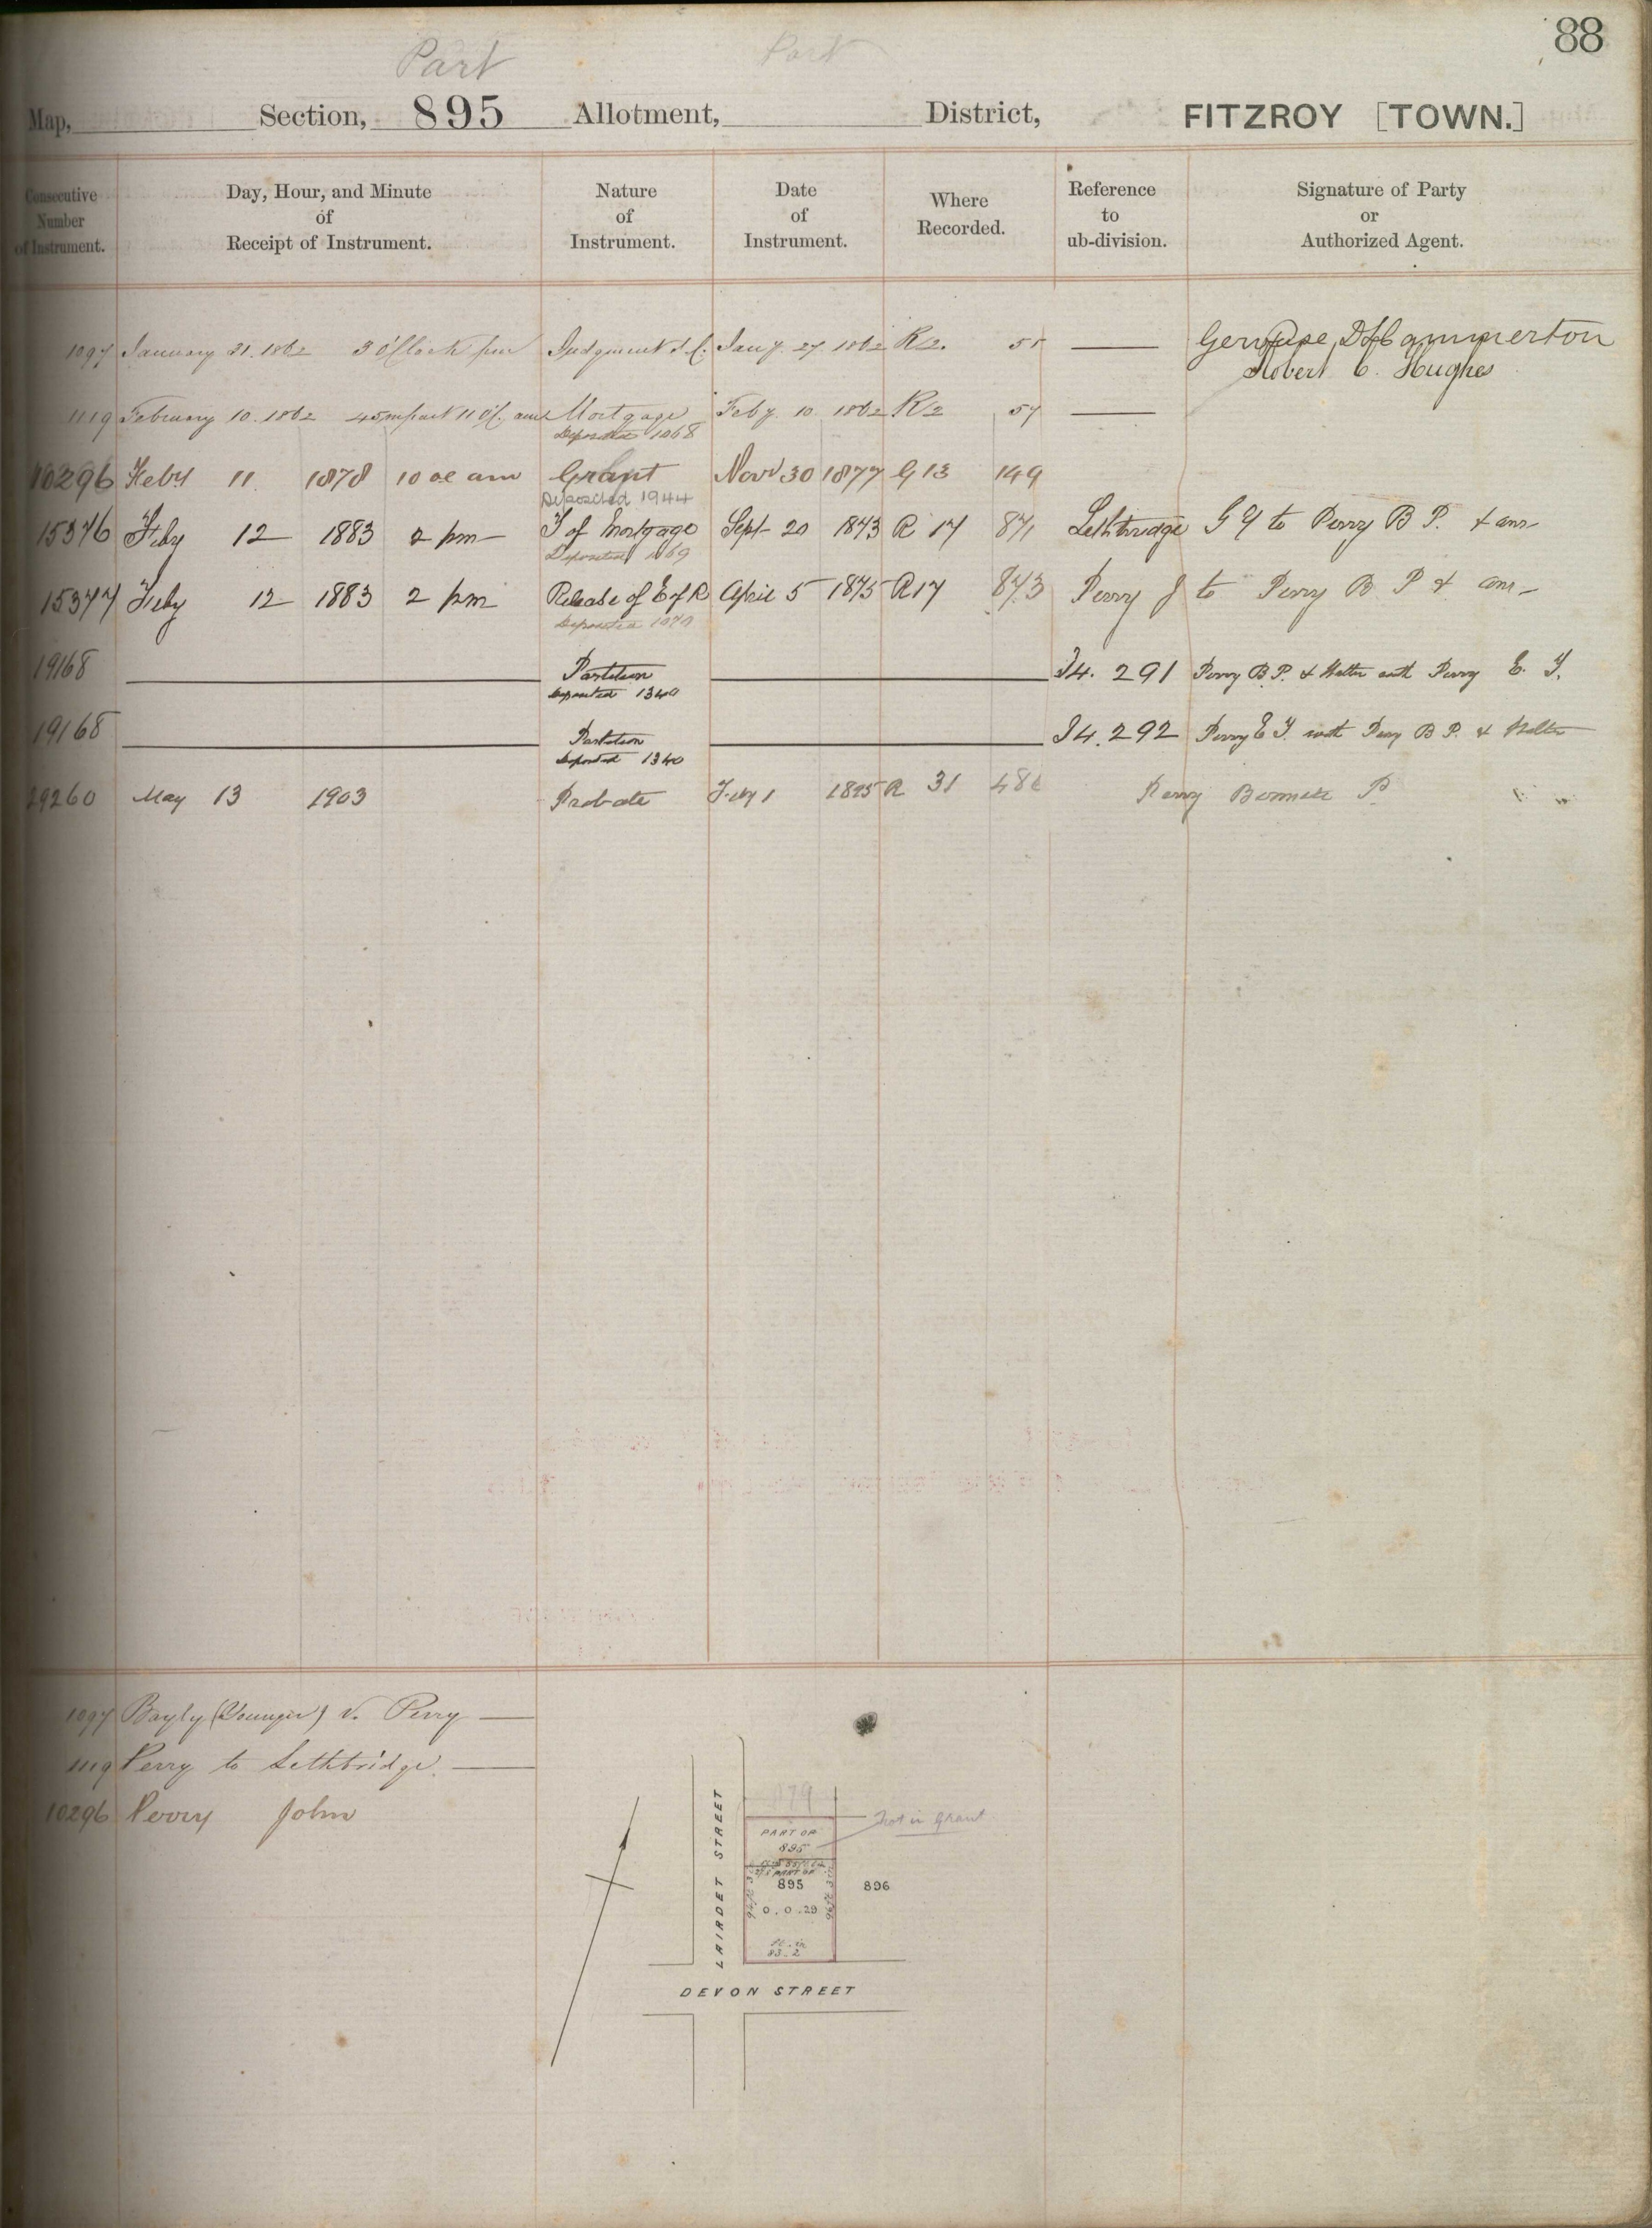 88
Part Part
Map, Section, 895 Allotment, District, FITZROY [TOWN.]
Consecutive Number of Instrument.
Day, Hour, and Minute of Receipt of Instrument.
Nature of Instrument.
Date of Instrument.
Where Recorded.
Reference to ub-division.
Signature of Party or Authorized Agent.
1097 January 31. 1862 3 O'Clock pm Judgment S.C. Jany. 27 1862 R2. 55 Hammerton
Robert C. Hughes
1119 February 10. 1862 45 m past 11 O'C. am Mortgage Feby. 10 1862 R2 57
Deposited 1068
10296 Feby 11 1878 10 oc am Grant Novr 30 1877 G 13 149
Deposited 1944
15376 Feby 12 1883 2 pm T of Mortgage Sept 20 1873 R 17 871 Lethbridge G Y to Perry B P. & anr
Deposited 1069
15377 Feby 12 1883 2 pm Release of E of R April 5 1875 R17 873 Perry J to Perry B P & anr
Deposited 1070
19168 Partition I4. 291 Perry B.P. & Walter with Perry E. Y.
Deposited 1340
19168 Partition I4. 292 Perry E Y. with Perry B P. & Walter
Deposited 1340
29260 May 13 1903 Probate Feby 1 1895 R 31 Perry P.
1097 Bayly (Younger) v. Perry
1119 Perry to Lethbridge.
10296 Perry John
879
Not in Grant
PART OF
895
PART OF
895
896
0.0.29
ft. in
83.2
LAIRDET STREET
DEVON STREET